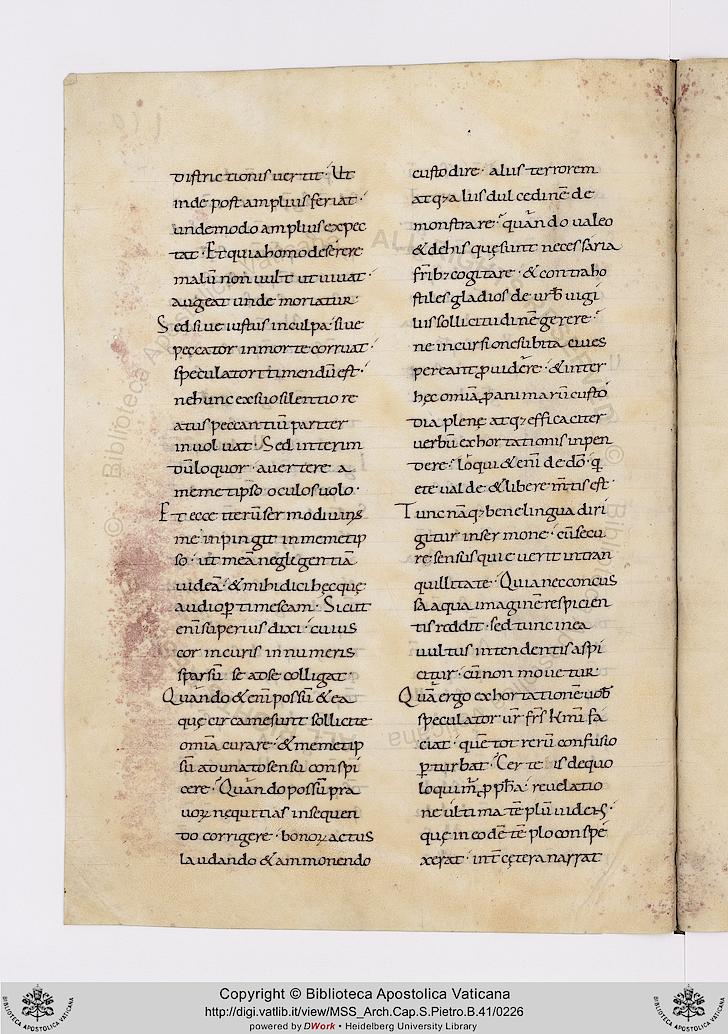 districtionis uertit· Ut
inde post amplius feriat·
unde modo amplius expec
tat· Et quia homo deserere
malū non uult ut uiuat·
augeat unde moriatur·
Sed siue iustus in culpa siue
peccator in morte corruat·
speculatori timendū est·
ne hunc ex suo silentio re
atus peccantiū pariter
inuoluat· Sed interim
dū loquor· auertere a
memetipso oculos uolo·
Et ecce iterū sermo diuinus
me inpingit in memetip
so· ut meā neglegentiā
uideā· & mihi dici hęc quę
audio ꝑtimescam· Sicut
enī superius dixi· cuius
cor in curis innumeris
sparsū se ad se colligat·
Quando & enī possū & ea
quę circa me sunt sollicite
omīa curare· & memetip
sū adunato sensu conspi
cere· Quando possū pra
uoꝝ nequitias insequen
do corrigere· bonoꝝ actus
laudando & ammonendo
custodire· aliis terrorem
atq; aliis dulcedinē de
monstrare· quando ualeo
& de his quę sunt necessaria
frīb; cogitare· & contra ho
stiles gladios de urb̄ uigi
liis sollicitudinē gerere·
ne incursione subita ciues
pereant ꝓuidēre· & inter
hęc omīa ꝓ animarū custo
dia plenę atq; efficaciter
uerbū exhortationis inpen
dere· loqui & enī de dō· q̄
ete ualde & libere mentis est·
Tunc nāq; bene lingua diri
gitur in sermone· cū secu
re sensus quieuerit in tran
quillitate· Quia nec concus
sa aqua imaginē respicien
tis reddit· sed tunc in ea
uultus intendentis aspi
citur· cū non mouetur
Quā ergo exhortationē uob̄
speculator ur̄ frs̄ kmī fa
ciat· quē tot rerū confusio
ꝑturbat· Certe is de quo
loquimur ꝓph̄a· reuelatio
ne ultima tēplū uidens·
quę in eodē tēplo conspe
xerat· int̄ cętera narrat
Copyright © Biblioteca Apostolica Vaticana
http://digi.vatlib.it/view/MSS_Arch.Cap.S.Pietro.B.41/0226
powered by DWork • Heidelberg University Library